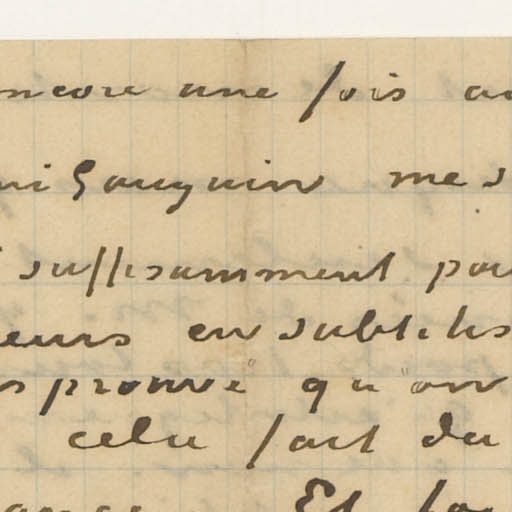 encore une fois au
mi Gauguin mes
suffisamment pou
eurs en subtils
s prouve qu'on
cela fait du
Et